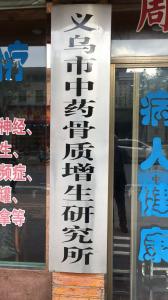 义乌市中药骨质增生研究所
周
病人健康
疗
神经、
生、
频症、
罐、
拿等